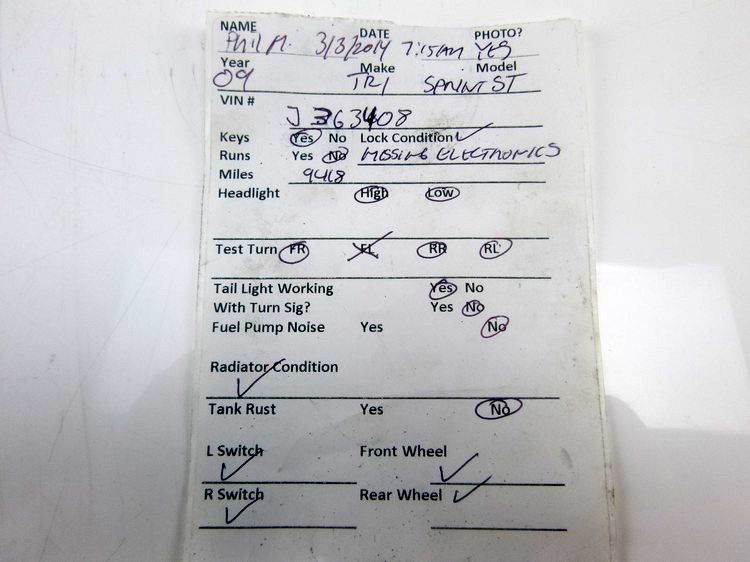 NAME DATE PHOTO?
Phil M. 3/3/2014 7:15AM YES
Year Make Model
09 TRI SPRINT ST
VIN #
J 363408
Keys Yes No Lock Condition ✓
Runs Yes No MISSING ELECTRONICS
Miles 9418
Headlight High Low
Test Turn FR FL RR RL
Tail Light Working Yes No
With Turn Sig? Yes No
Fuel Pump Noise Yes No
Radiator Condition
✓
Tank Rust Yes No
L Switch Front Wheel
✓ ✓
R Switch Rear Wheel ✓
✓